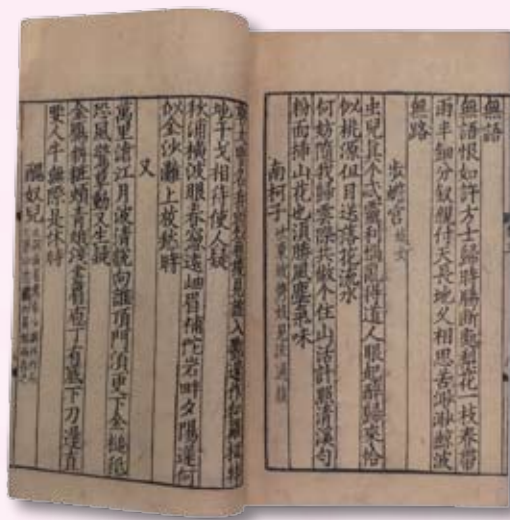 無語
無語恨如許方士歸時腸斷處梨花一枝春帶
雨半鈿分釵親付天長地久相思苦渺渺鯨波
無路
步蟾宮 妓女
虫兒真个忒靈利惱亂得道人眼起醉歸來恰
似桃源但目送落花流水
何妨隨我歸雲際共做个住山活計照清溪勻
粉面插山花也須勝風塵氣味
南柯子
見誰入鄽還作和羅槌特
地干戈相待使人疑
秋浦橫波眼春窗遠岫眉補陀岩畔夕陽遲何
似金沙灘上放憨時
又
萬里滄江月波清說向誰頂門須更下金槌秖
恐風驚草動又生疑
金雁斜粧頰青螺淺畫眉庖丁有底下刀遲直
要人牛無際是休時
醜奴兒